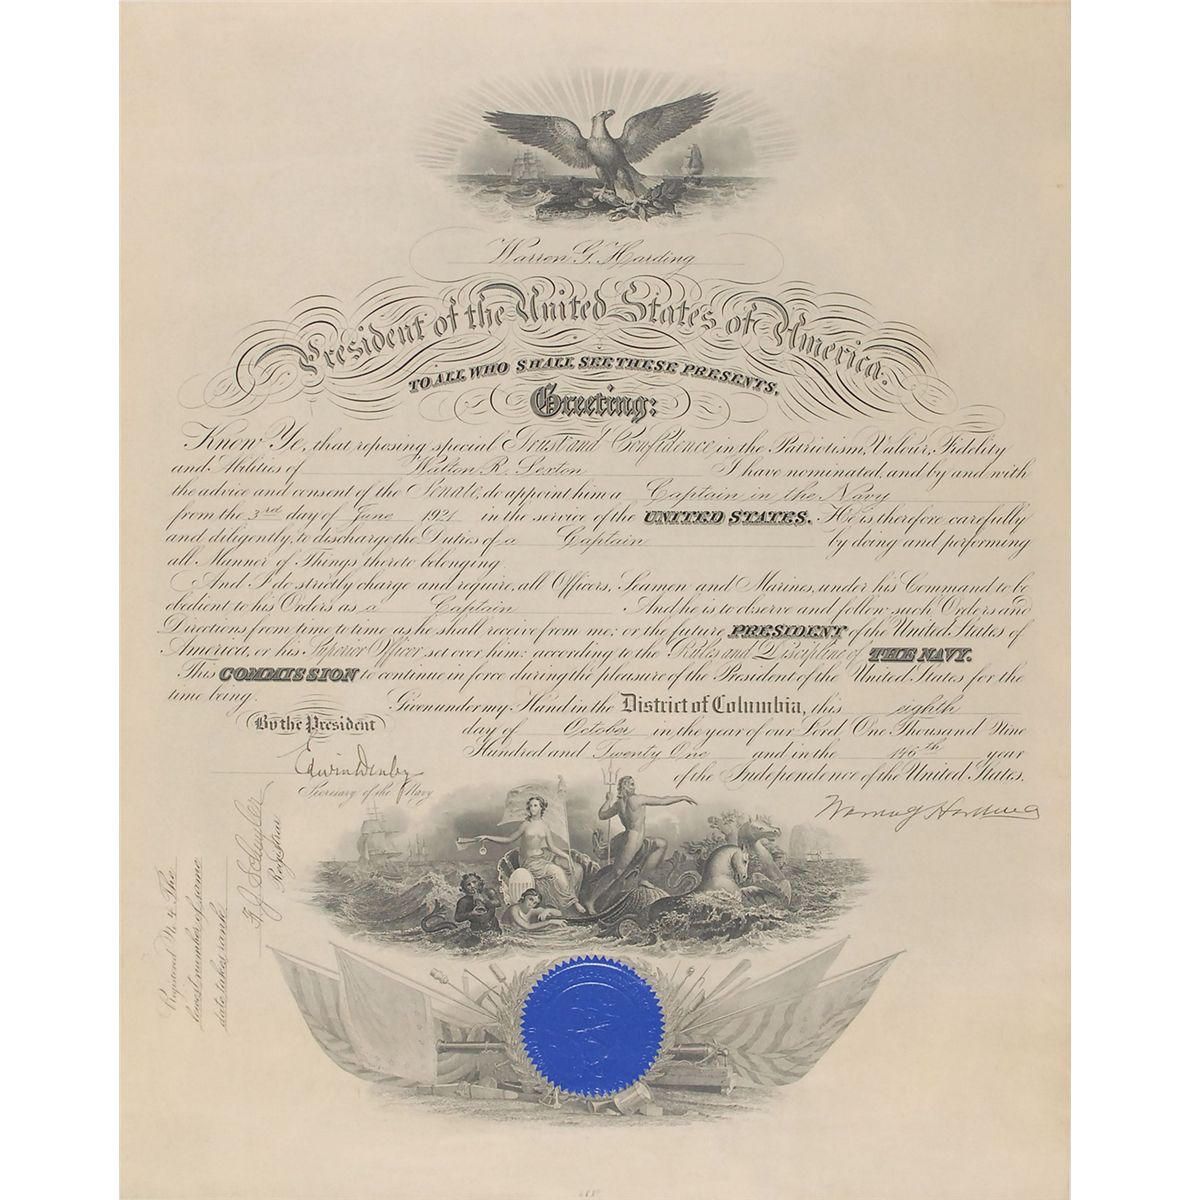 Warren G. Harding
President of the United States of America.
TO ALL WHO SHALL SEE THESE PRESENTS,
Greeting:
Know Ye, that reposing special Trust and Confidence in the Patriotism, Valour, Fidelity
and Abilities of Walton R. Sexton I have nominated, and by and with
the advice and consent of the Senate, do appoint him a Captain in the Navy
from the 3rd day of June 1921 in the service of the UNITED STATES. He is therefore carefully
and diligently, to discharge the Duties of a Captain by doing and performing
all Manner of Things thereto belonging.
And I do strictly charge and require, all Officers, Seamen and Marines, under his Command to be
obedient to his Orders as a Captain And he is to observe and follow such Orders and
Directions from time to time as he shall receive from me; or the future PRESIDENT of the United States of
America, or his Superior Officer set over him; according to the Rules and Discipline of THE NAVY.
This COMMISSION to continue in force during the pleasure of the President of the United States for the
time being.
Given under my Hand in the District of Columbia, this eighth
By the President
day of October in the year of our Lord One Thousand Nine
Hundred and Twenty One and in the 146th year
of the Independence of the United States.
Edwin Denby
Secretary of the Navy
Warren G Harding
F. J. Schuyler
Registrar
Registered No. 4 The
lowest number of same
date takes rank